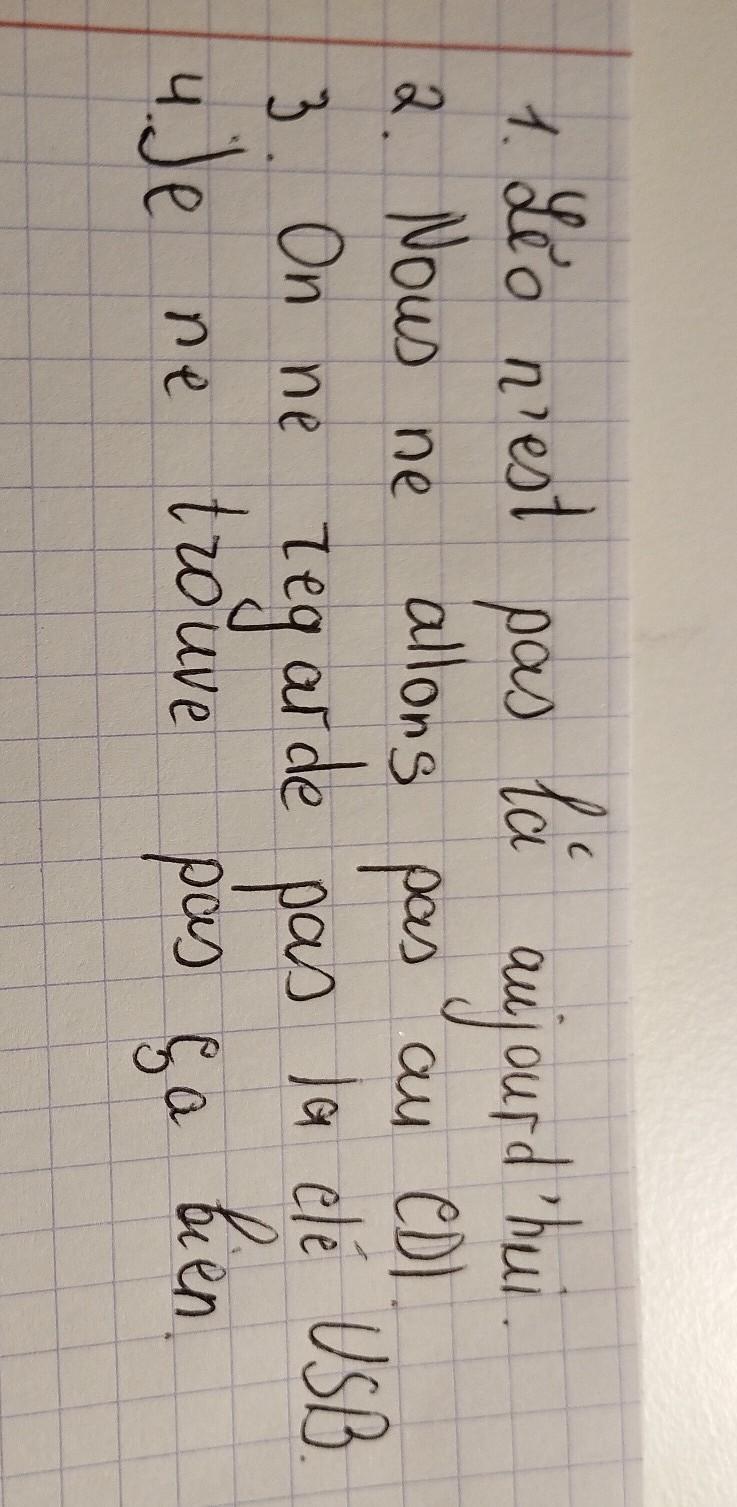 1. Léo n'est pas là aujourd'hui.
2. Nous ne allons pas au CDI.
3. On ne regarde pas la clé USB.
4. Je ne trouve pas ça bien.